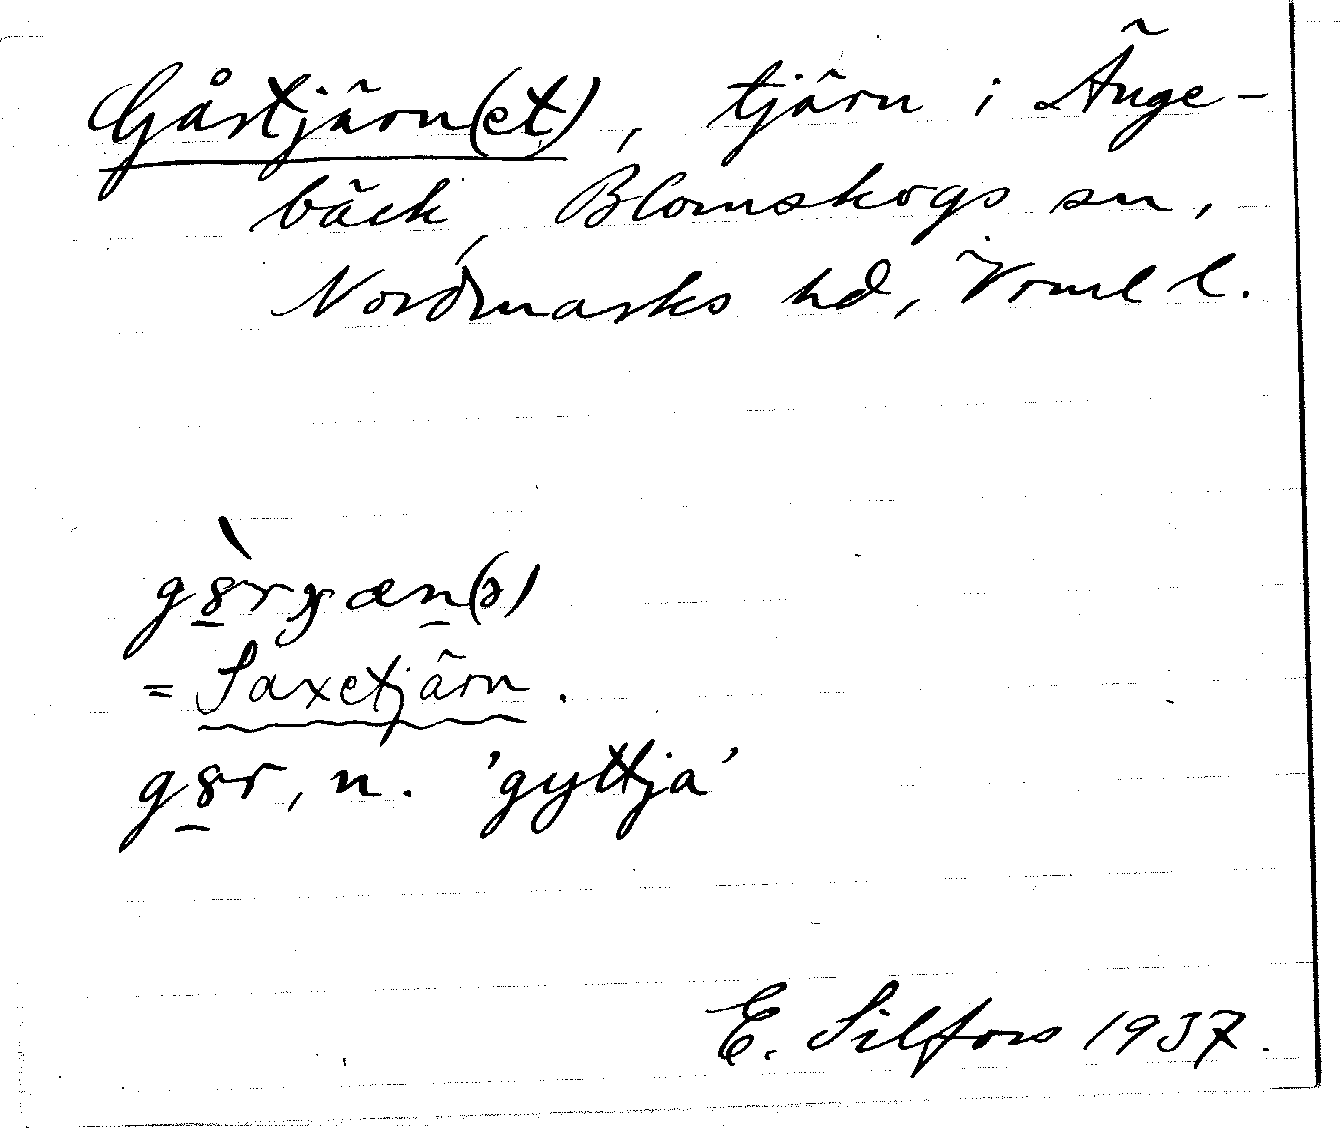 Gårtjärn(et), tjärn i Änge-
bäck, Blomskogs sn,
Nordmarks hd, Vrml l.
= Saxetjärn.
n. 'gyttja'
E. Silfors 1937.